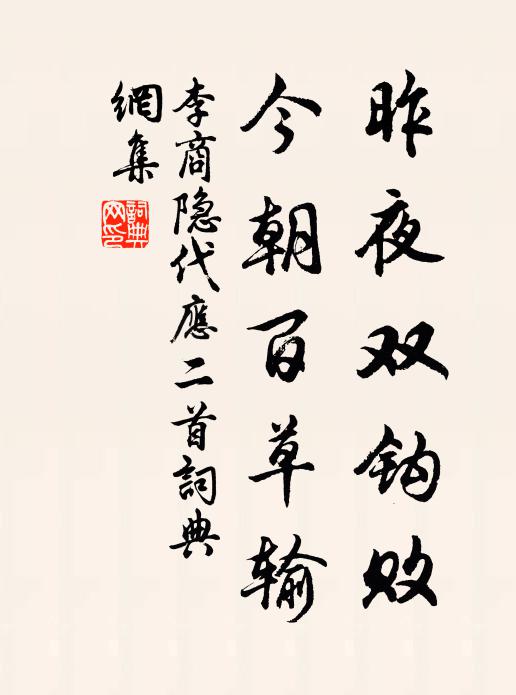 昨夜双钩败
今朝百草输
李商隐代應二首詞典
網集
詞典网印